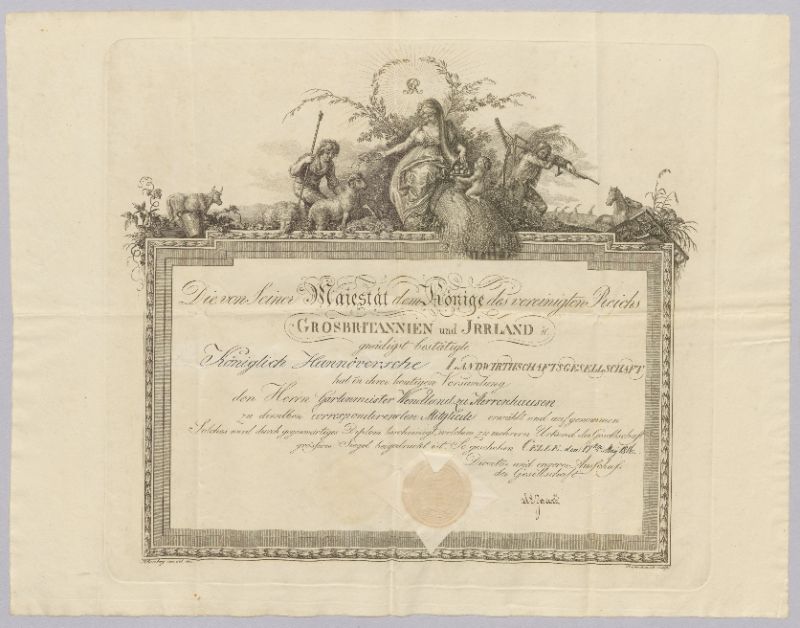 GR
Die von Seiner Maiestät dem Könige des vereinigten Reichs
GROSBRITANNIEN und JRRLAND
gnädigst bestätigte
Königlich Hannöversche LANDWIRTHSCHAFTSGESELLSCHAFT
hat in ihrer heutigen Versamlung
den Herrn Gartenmeister Wendland zu Herrenhausen
zu derselben correspondirenden Mitgliede erwählt und aufgenommen
Solches wird durch gegenwärtiges Diplom bescheinigt, welchem zu mehrern Urkund der Gesellschaft
grösseres Siegel beygedruckt ist. So geschehen CELLE, den 17ten May
Director und engerer Ausschuß
der Gesellschaft